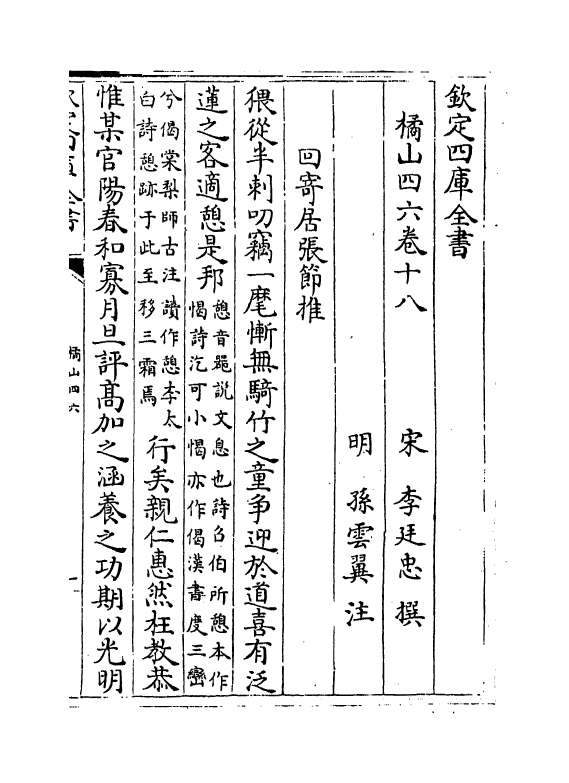 欽定四庫全書
橘山四六卷十八
宋 李廷忠 撰
明 孫雲翼 注
回寄居張節推
猥從半刺叨竊一麾慚無騎竹之童爭迎於道喜有泛
蓮之客適憩是邦憩音器說文息也詩召伯所憩本作
愒詩汔可小愒亦作偈漢書度三巒
兮偈棠梨師古注讀作憩李太
白詩憩跡于此至移三霜焉行矣親仁惠然枉教恭
惟某官陽春和寡月旦評髙加之涵養之功期以光明
橘山四六